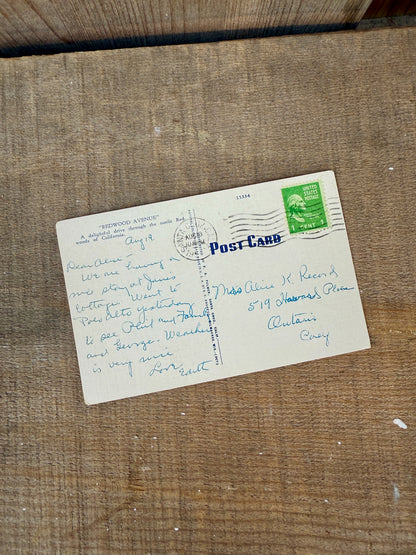 "REDWOOD AVENUE"
A delightful drive through the noble Red
woods of California.
11334
UNITED
STATES POSTAGE
1 CENT
POST CARD
Aug 19
Dear Alice -
We are having a
nice stay at Jane's
cottage. Went to
Palo Alto yesterday
to see Phil and family
and George. Weather
is very nice
Love
Edith
Miss Alice K. Record
519 Harvard Place
Ontario